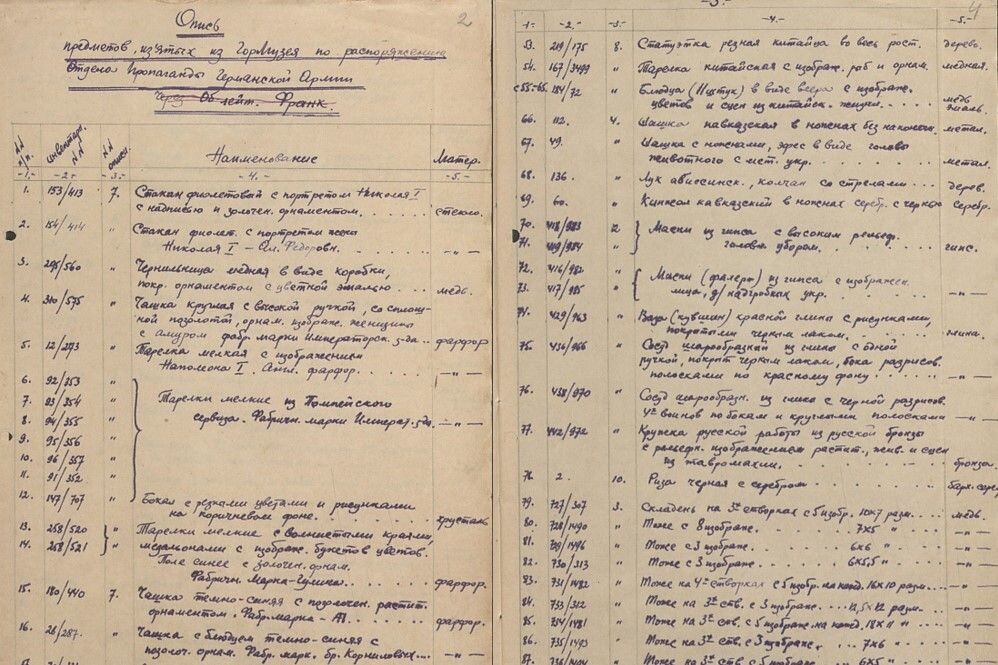 2
Опись
предметов, изъятых из Гормузея по распоряжению
Отдела Пропаганды Германской Армии
через Об. лейт. Франк.
NN п/п. инвентарн. NN NN описи. Наименование Матер.
-1- -2- -3- -4- -5-
1. 153/413 7. Стакан фиолетовый с портретом Николая I
с надписью и золочен. орнаментом. стекло.
2. 154/414 " Стакан фиолет. с портретом
Николая I – Ал. Федоровн.
3. 295/560 " Чернильница медная в виде коробки,
покр. орнаментом с цветной эмалью. медь.
4. 310/575 " Чашка круглая с высокой ручкой, со сплош-
ной позолотой, орнам. изображ. женщины
с амуром фабр. марки Императорск. з-да фарфор
5. 12/273 " Тарелка мелкая с изображением
Наполеона I. Англ. фарфор. — " —
6. 92/253 "
7. 93/354 " Тарелки мелкие из Помпейского
8. 94/355 " сервиза. Фабричн. марки Императ. з-да. — " —
9. 95/356 "
10. 96/357 "
11. 91/352 "
12. 147/707 " Бокал с резными цветами и рисунками
на коричневом фоне. хрусталь
13. 258/520 " Тарелки мелкие с волнистыми краями,
14. 258/521 " медальонами с изображ. букетов цветов.
Поле синее с золочен. орнам.
Фабричн. Марка фарфор.
15. 180/440 7. Чашка темно-синяя с позолочен. растит.
орнаментом. Фабр. марка - фарфор.
16. 28/287. " Чашка с блюдцем темно-синяя с
позолоч. орнам. Фабр. марк. бр. Корниловых — " —
4
-3-
-1- -2- -3- -4- -5-
53. 219/175 8. Статуэтка резная китайца во весь рост. дерево.
54. 167/3499 " Тарелка китайская с изображ. рыб и орнам. медная.
с 55-65. 184/72 " Блюдца (11 штук) в виде веера с изображ.
цветов и сцен из китайск. жизни. медь эмаль.
66. 112. 4. Шашка кавказская в ножнах без наконечн. метал.
67. 49. " Шашка с ножнами, эфес в виде головы
животного с мет. укр. метал.
68. 136. " Лук абиссинск., колчан со стрелами дерев.
69. 60. " Кинжал кавказский в ножнах серебр. с чернью серебр.
70. 418/983 12 Маски из гипса с высоким рельеф.
71. 419/984 " головн. убором. гипс.
72. 416/982 " Маски (фалеры) из гипса с изображен.
73. 417/985 " лица, д/надгробных укр. — " —
74. 429/963 " Ваза (кувшин) красной глины с рисунками,
покрытыми черным лаком глина.
75. 436/966 " Сосуд шарообразный из глины с одной
ручкой, покрыт черным лаком, бока разрисов.
полосками по красному фону — " —
76. 438/970 " Сосуд шарообразн. из глины с черной разрисов.
4х воинов по бокам и круглыми полосками — " —
77. 442/972 " Кружка русской работы из русской бронзы
с рельефн. изображением растит., жив. и сцен
из бронза.
78. 2. 10. Риза черная с серебром
79. 727/307 3. Складень на 3х створках с 5 изобр. 10х7 разм. медь.
80. 728/1490 " Тоже с 8 изображ. 7х5 " — " —
81. 729/1496 " Тоже с 3 изображ. 6х6 " — " —
82. 730/313 " Тоже с 3 изображ. 6х5,5 " — " —
83. 731/1482 " Тоже на 4х створках с 5 изобр. на кажд. 16х10 разм. — " —
84. 733/312 " Тоже на 3х ств. с 3 изображ. 12,5х12 разм. — " —
85. 734/1481 " Тоже на 3х ств. с 5 изображ. на кажд. 18х11 " — " —
86. 735/1493 " Тоже на 3х ств. с 3 изображ. 7х6 " — " —
87. " Тоже на 3х ств. с 5 изображ. — " —